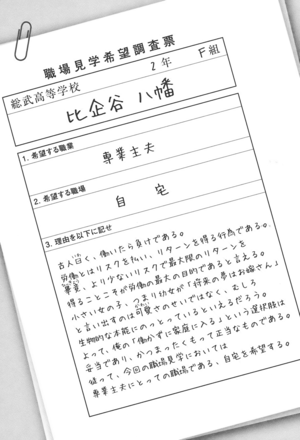 職場見学希望調査票
総武高等学校
2年 F組
比企谷 八幡
1. 希望する職業
専業主夫
2. 希望する職場
自宅
3. 理由を以下に記せ
古人曰く、働いたら負けである。
労働とはリスクを払い、リターンを得る行為である。
畢竟、より少ないリスクで最大限のリターンを
得ることこそが労働の最大の目的であると言える。
小さい女の子、つまり幼女が「将来の夢はお嫁さん」
と言い出すのは可愛さのせいではなく、むしろ
生物的な本能にのっとっているといえるだろう。
よって、俺の「働かずに家庭に入る」という選択肢は
妥当であり、かつまったくもって正当なものである。
従って、今回の職場見学においては
専業主夫にとっての職場である、自宅を希望する。